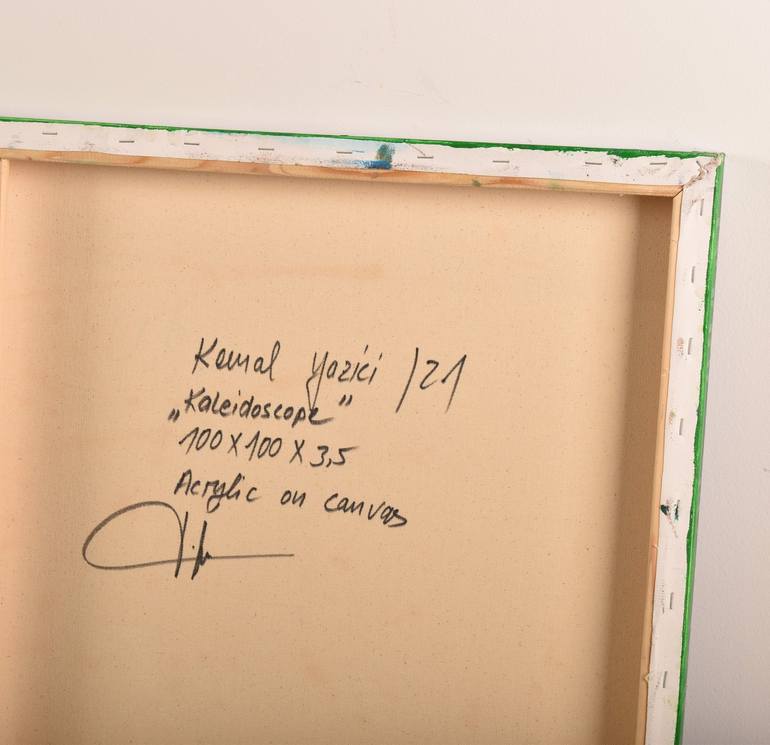 Kemal Yazici /21
„Kaleidoscope"
100 X 100 X 3,5
Acrylic on canvas